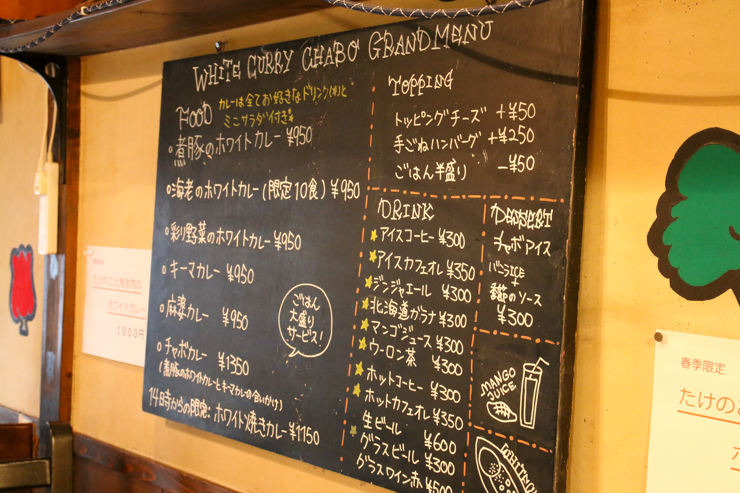 WHITE CURRY CHABO GRANDMENU
FOOD
カレーは全てお好きなドリンク(★)と
ミニサラダ付き
煮豚のホワイトカレー ¥950
海老のホワイトカレー(限定10食) ¥950
彩り野菜のホワイトカレー ¥950
キーマカレー ¥950
麻婆カレー ¥950
チャボカレー ¥1350
(煮豚のホワイトカレーとキーマカレーの合いがけ)
14時からの限定: ホワイト焼きカレー ¥1150
ごはん
大盛り
サービス!
TOPPING
トッピングチーズ +¥50
手ごねハンバーグ +¥250
ごはん半盛り -¥50
DRINK
★アイスコーヒー ¥300
★アイスカフェオレ ¥350
★ジンジャエール ¥300
★北海道ガラナ ¥300
★マンゴジュース ¥300
★ウーロン茶 ¥300
★ホットコーヒー ¥300
★ホットカフェオレ ¥350
生ビール ¥600
グラスビール ¥300
グラスワイン赤 ¥500
DESSERT
チャボアイス
バニラICE
+
のソース
¥300
MANGO
JUICE
たけのこと
ホワイトカレー
1000円
春季限定
たけの